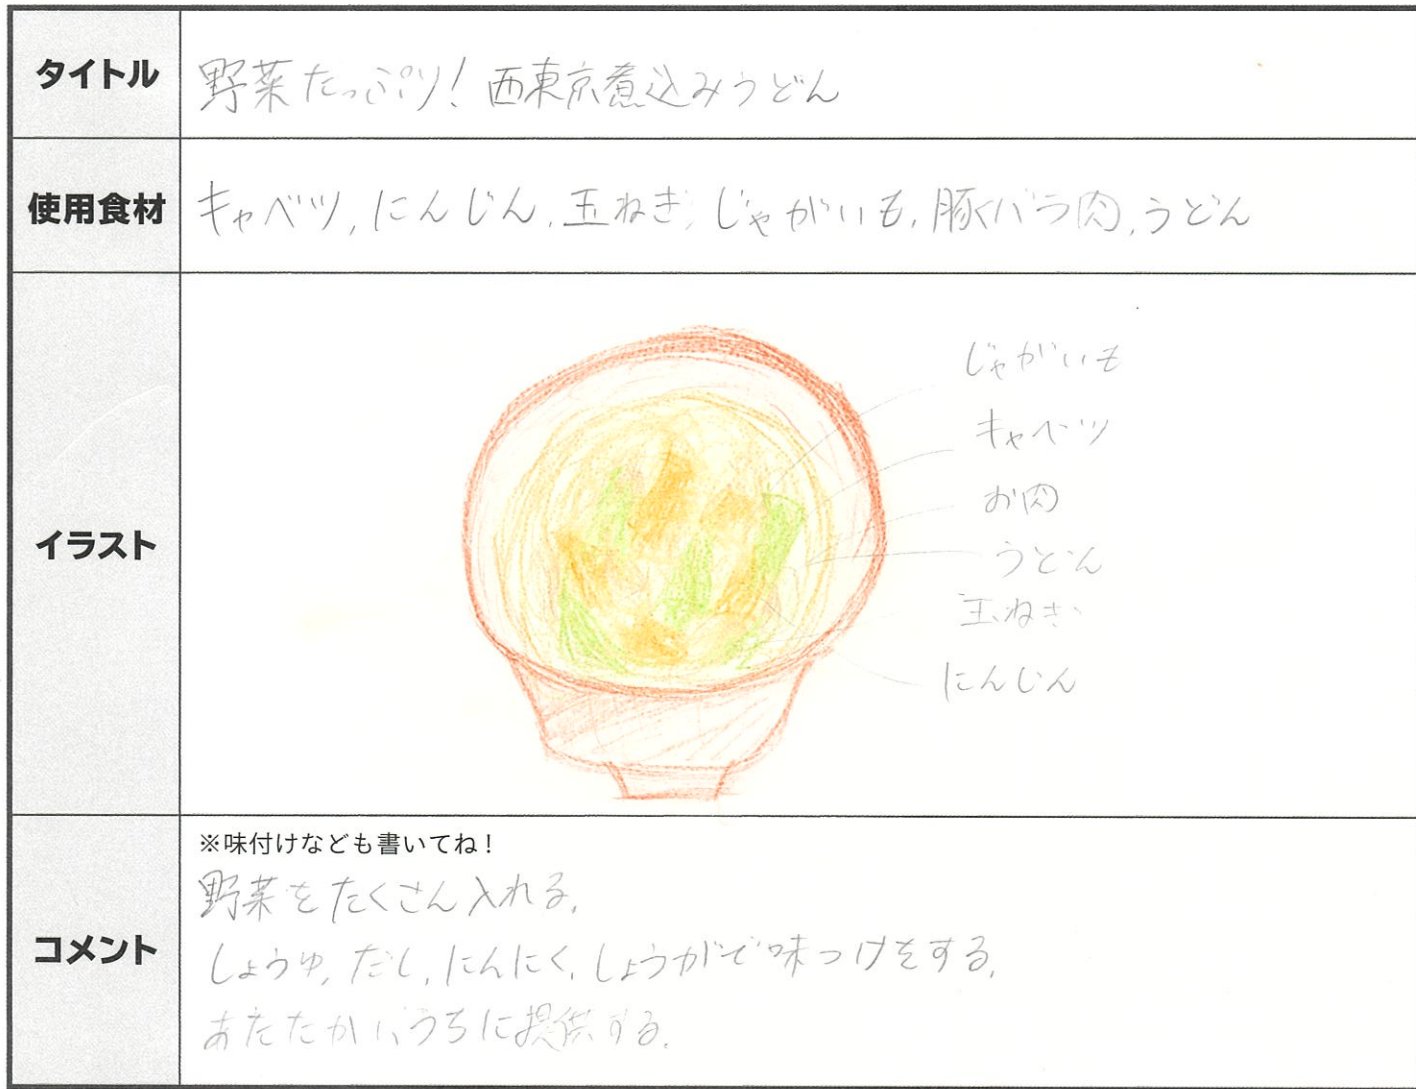 タイトル
野菜たっぷり！西東京煮込みうどん
使用食材
キャベツ,にんじん,玉ねぎ,じゃがいも,豚バラ肉,うどん
イラスト
じゃがいも
キャベツ
お肉
うどん
玉ねぎ
にんじん
コメント
※味付けなども書いてね！
野菜をたくさん入れる。
しょうゆ,だし,にんにく,しょうがで味つけをする。
あたたかいうちに提供する。